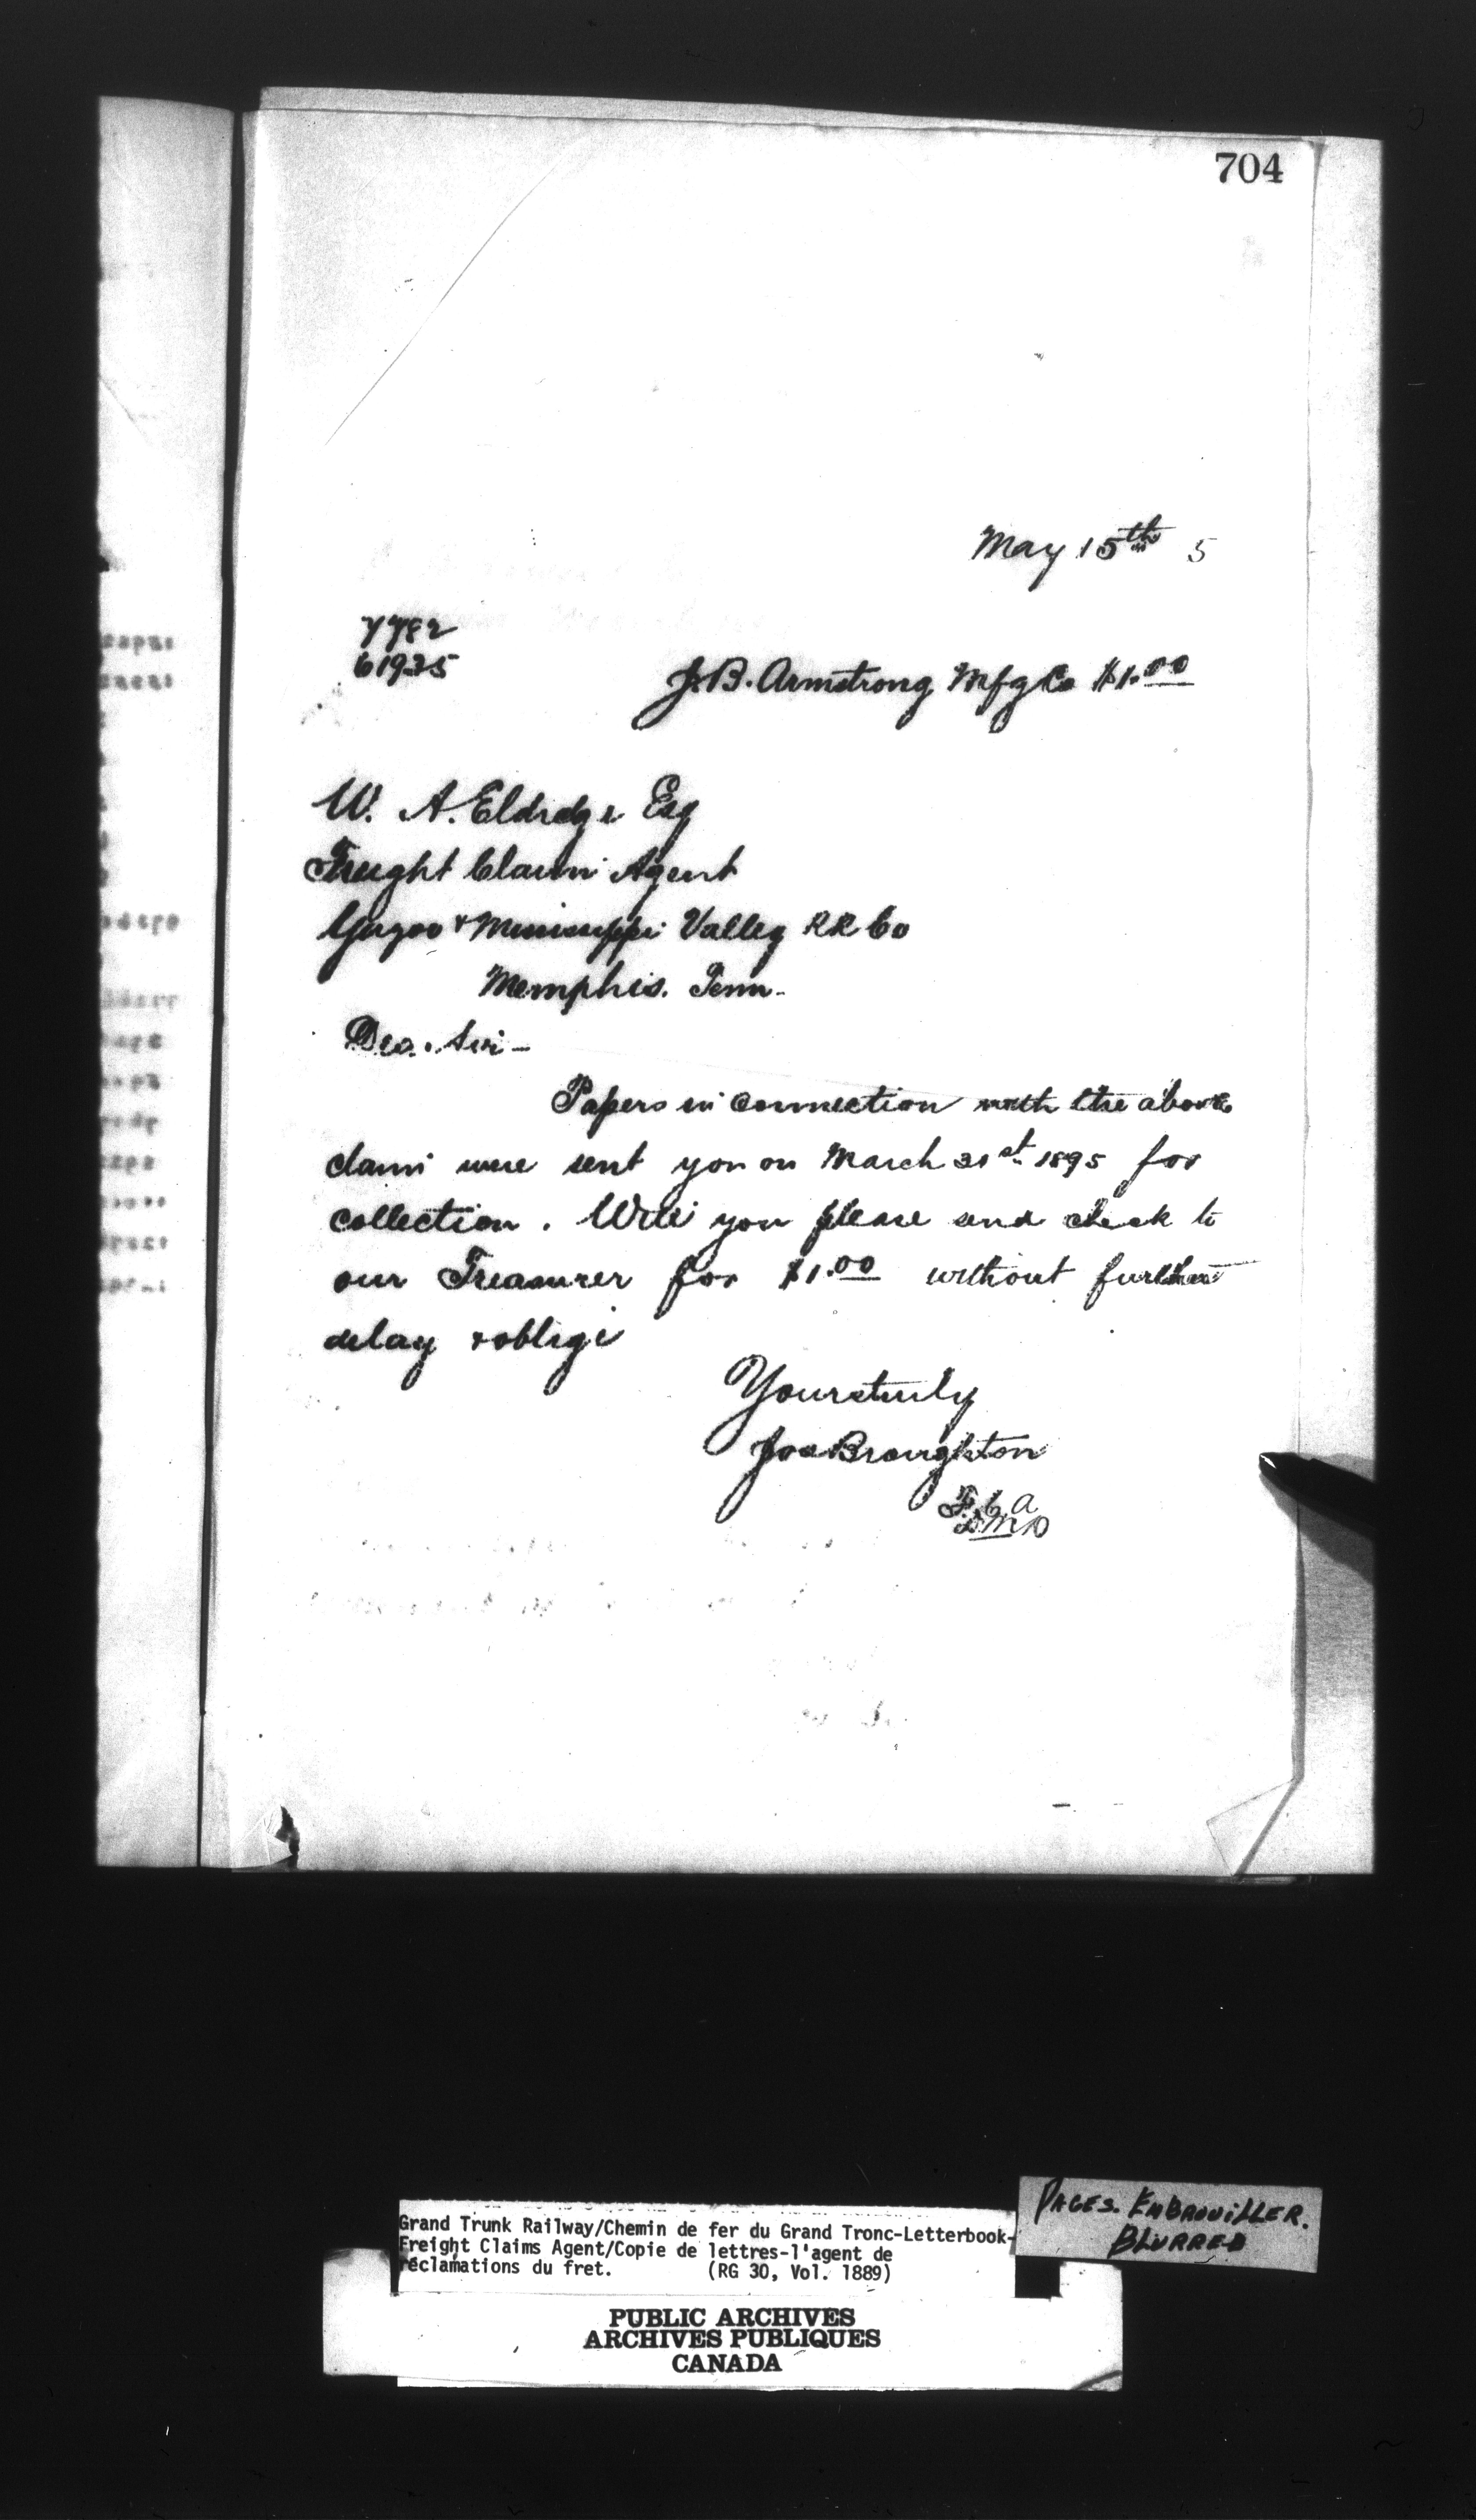 704
May 15th 5
61935
J.B. Armstrong Mfg Co $1.00
W. A. Eldredge Esq
Freight Claim Agent
Yazoo & Mississippi Valley RR Co
Memphis. Tenn-
Dear Sir-
Papers in connection with the above
claim were sent you on March 21st 1895 for
collection. Will you please send check to
our Treasurer for $1.00 without further
delay & oblige
Yours truly
Jno Broughton
F.C.A
PAGES. EMBROUILLER.
BLURRED
Grand Trunk Railway/Chemin de fer du Grand Tronc-Letterbook-
Freight Claims Agent/Copie de lettres-l'agent de
réclamations du fret. (RG 30, Vol. 1889)
PUBLIC ARCHIVES
ARCHIVES PUBLIQUES
CANADA